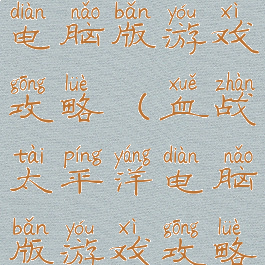 diàn nǎo bǎn yóu xì
电脑版游戏
gōng luè xuě zhàn
攻略（血战
tài píng yáng diàn nǎo
太平洋电脑
bǎn yóu xì gōng luè
版游戏攻略